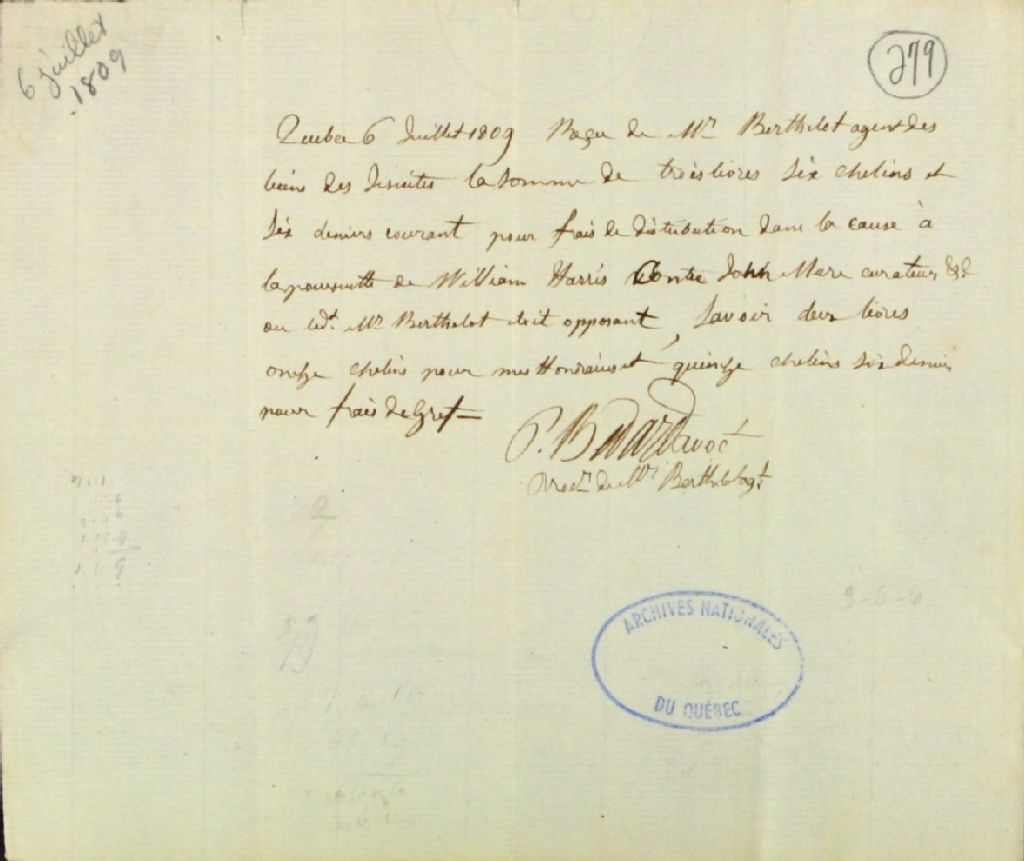 6 juillet
1809
279
Quebec 6 Juillet 1809 Reçu de Mr. Berthelot agent des
biens des Jesuites la somme de trois livres six chelins et
six deniers courant pour frais de distribution dans la cause à
la poursuitte de William Harris Contre John Mure curateur &c
ou led. Mr Berthelot etoit opposant, Savoir deux livres
onze chelins pour mes Honoraires et quinze chelins six deniers
pour frais de Gref
P. Bedard avoct
Procr. de Mr Berthelot agt.
3-6-6
ARCHIVES NATIONALES
DU QUÉBEC